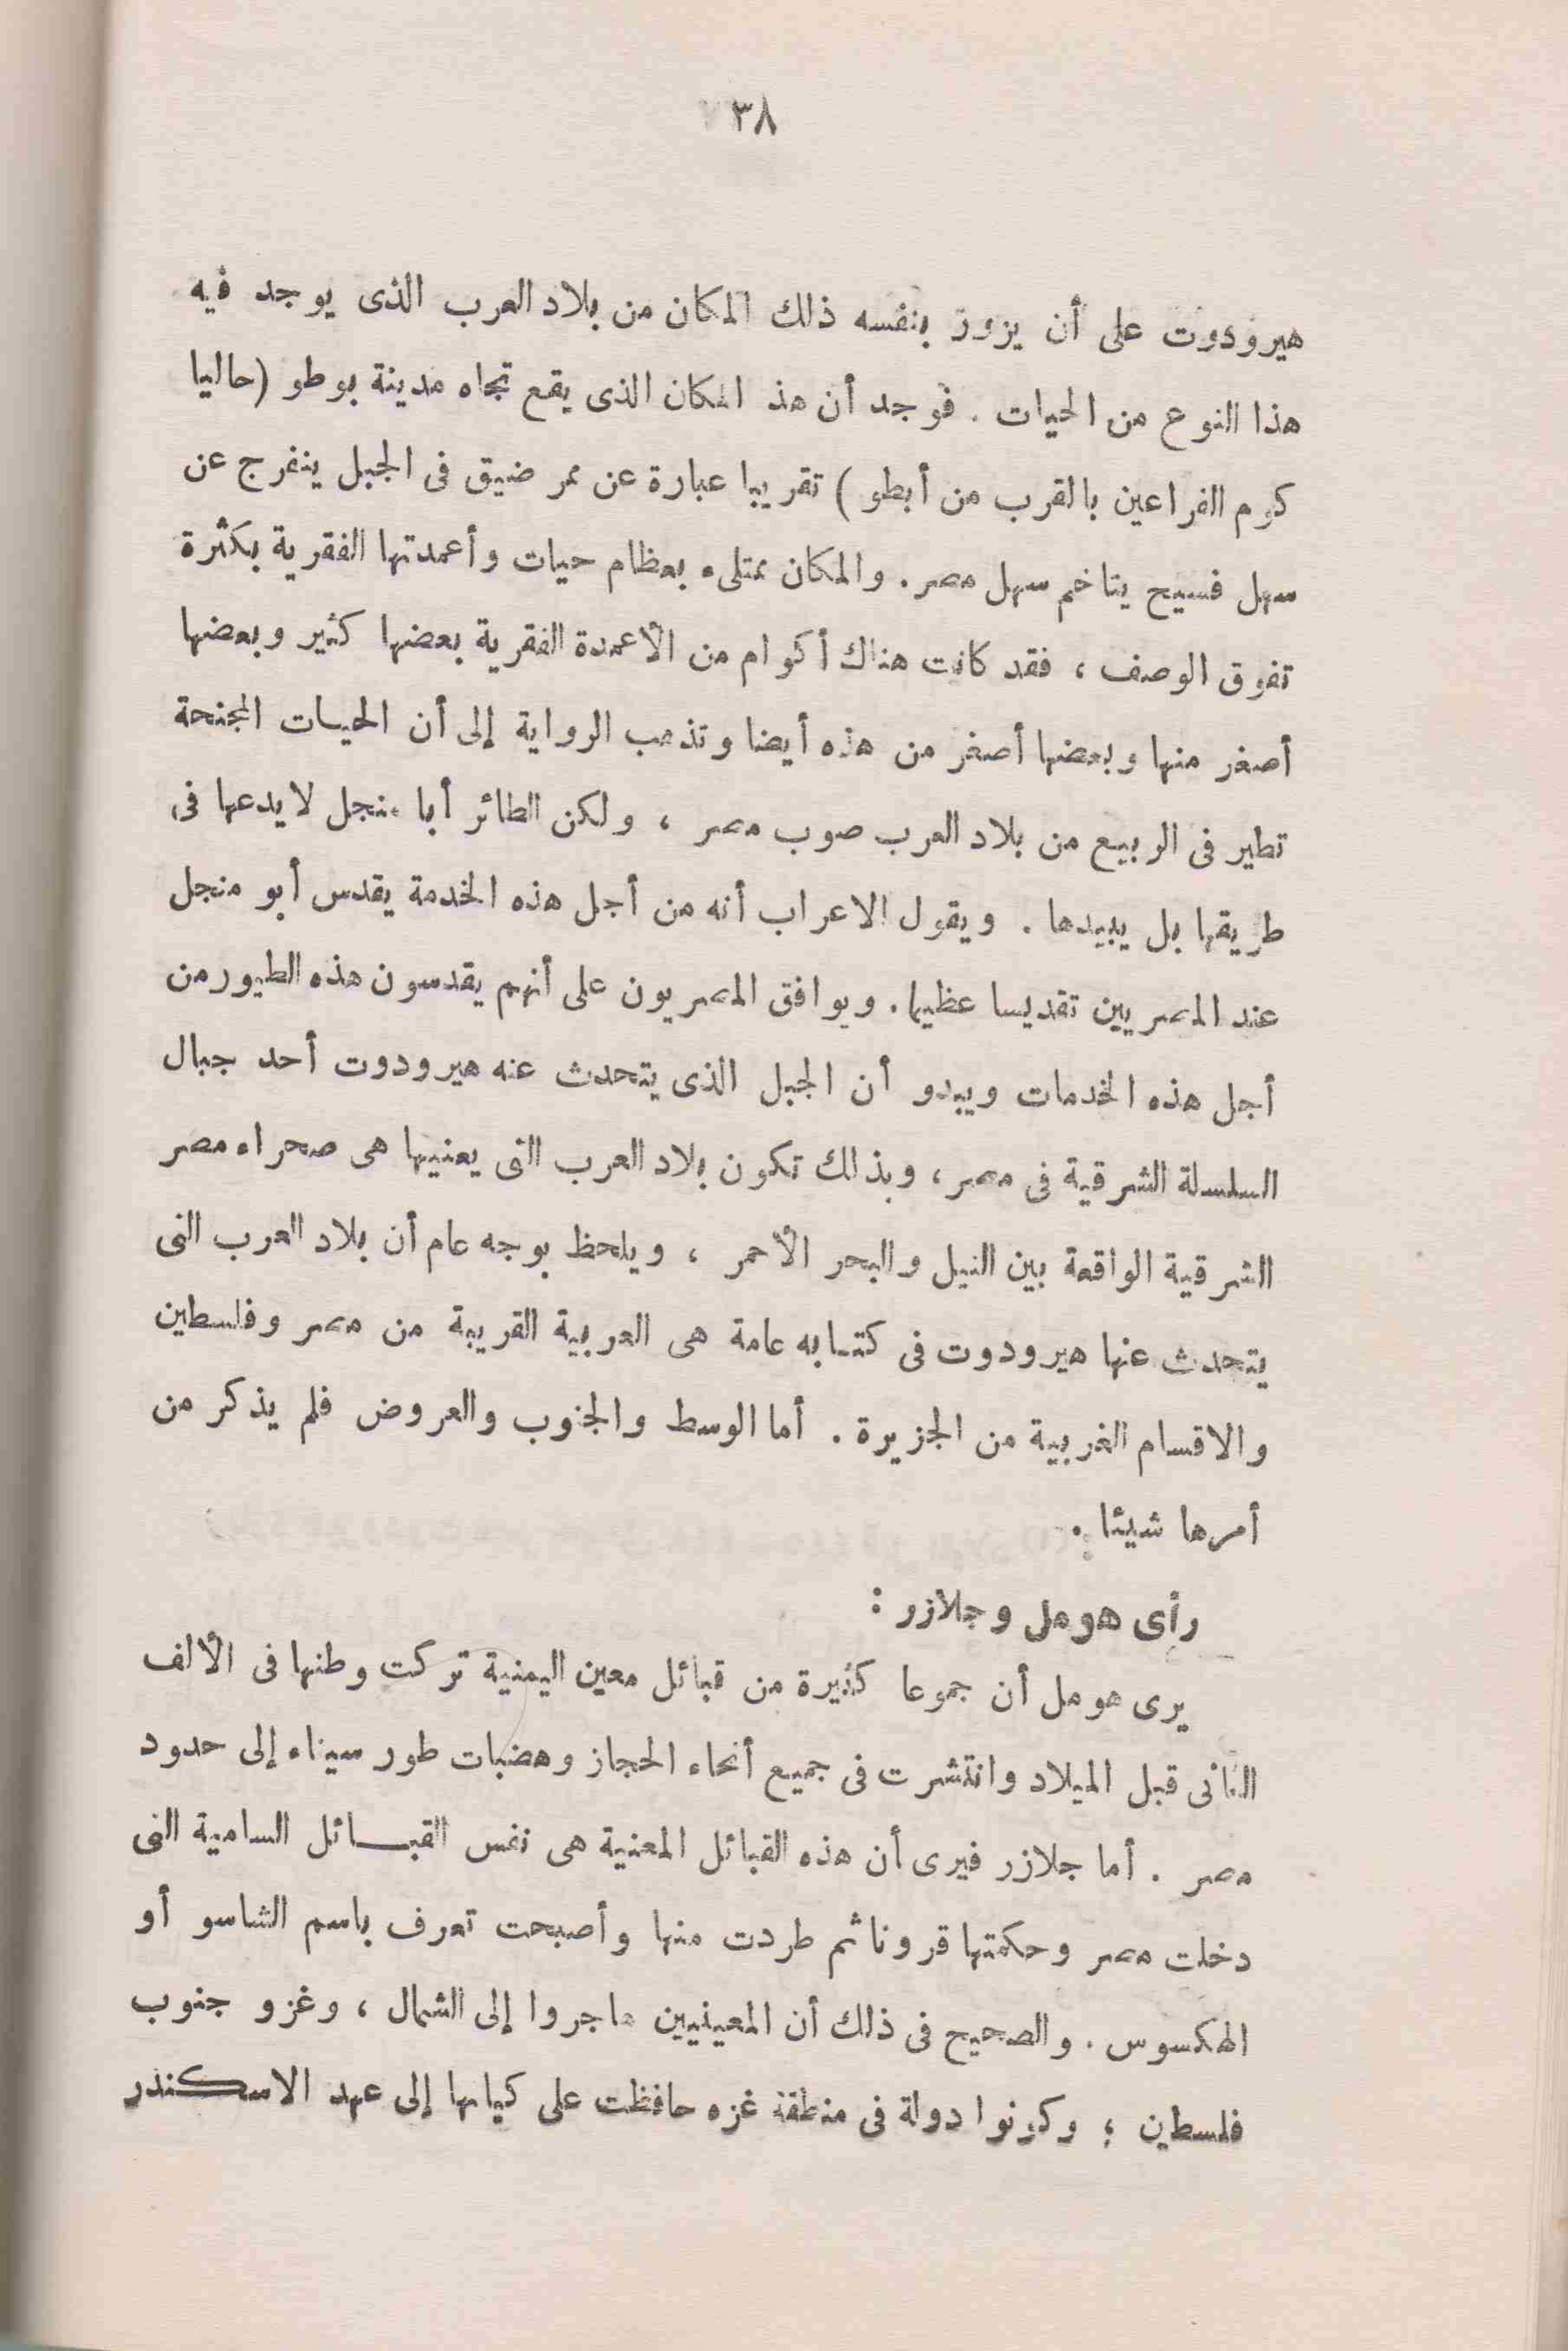 ٣٨
هيرودوت على أن يزور بنفسه ذلك المكان من بلاد العرب الذى يوجد فيه
هذا النوع من الحيات . فوجد أن هذ المكان الذى يقع تجاه مدينة بوطو (حاليا
كوم الفراعين بالقرب من أبطو) تقريبا عبارة عن ممر ضيق فى الجبل ينفرج عن
سهل فسيح يتاخم سهل مصر . والمكان ممتلىء بعظام حيات وأعمدتها الفقرية بكثرة
تفوق الوصف ، فقد كانت هناك أكوام من الأعمدة الفقرية بعضها كثير وبعضها
أصغر منها وبعضها أصغر من هذه أيضا وتذهب الرواية إلى أن الحيات المجنحة
تطير فى الربيع من بلاد العرب صوب مصر ، ولكن الطائر أبا منجل لايدعها فى
طريقها بل يبيدها . ويقول الاعراب أنه من أجل هذه الخدمة يقدس أبو منجل
عند المصريين تقديسا عظيما . ويوافق المصريون على أنهم يقدسون هذه الطيور من
أجل هذه الخدمات ويبدو أن الجبل الذى يتحدث عنه هيرودوت أحد جبال
السلسلة الشرقية فى مصر ، وبذلك تكون بلاد العرب التى يعنيها هى صحراء مصر
الشرقية الواقعة بين النيل والبحر الأحمر ، ويلحظ بوجه عام أن بلاد العرب التى
يتحدث عنها هيرودوت فى كتابه عامة هى العربية القريبة من مصر وفلسطين
والاقسام الغربية من الجزيرة . أما الوسط والجنوب والعروض فلم يذكر من
أمرها شيئا .
رأى هومل وجلازر :
يرى هومل أن جموعا كثيرة من قبائل معين اليمنية تركت وطنها فى الألف
الثانى قبل الميلاد وانتشرت فى جميع أنحاء الحجاز وهضبات طور سيناء إلى حدود
مصر . أما جلازر فيرى أن هذه القبائل المعنية هى نفس القبائل السامية التى
دخلت مصر وحكمتها قرونا ثم طردت منها وأصبحت تعرف باسم الشاسو أو
الهكسوس . والصحيح فى ذلك أن المعينيين هاجروا إلى الشمال ، وغزو جنوب
فلسطين ؛ وكونوا دولة فى منطقة غزه حافظت على كيانها إلى عهد الاسكندر